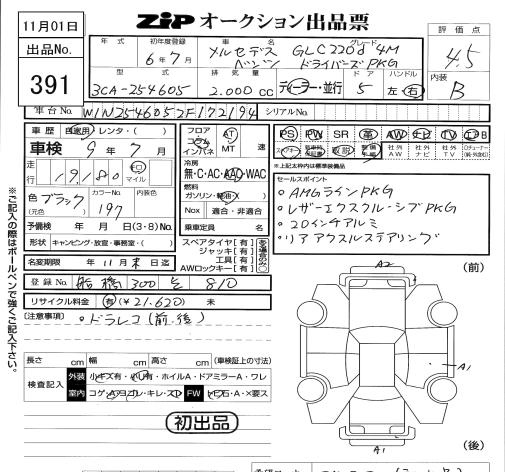 11月01日
出品No.
391
ZiP オークション出品票
評価点
4.5
内装
B
年式 初年度登録 6年7月
車名 メルセデスベンツ グレード GLC220d 4M ドライバーズPKG
型式 3CA-254605 排気量 2.000 CC ディーラー・並行 ドア 5 ハンドル 左・右
車台No. W1N2546052F172194 シリアルNo.
車歴 自家用・レンタ・( )
車検 9年7月
走行 19180 キロ マイル
色 ブラック (元色) カラーNo. 197 内装色
予備検 年 月 日(3・8)No.
形状 キャンピング・放宣・事務室・( )
名変期限 年 11月 末 日迄
登録No. 船橋 300 る 810
リサイクル料金 有(¥21.620) 未
フロア コラム インパネ AT MT 速
冷房 無・C・AC・AAC・WAC
燃料 ガソリン・軽油・( )
Nox 適合・非適合
乗車定員 名
スペアタイヤ[有]
ジャッキ[有]
工具[有]
AWロックキー[有]
を適合に○
PS PW SR 革 AW ナビ TV エアB
スペアキー 取説 社外AW 社外ナビ 社外TV
*上記太枠内は標準装備品
セールスポイント
○AMGラインPKG
○レザーエクスクルーシブPKG
○20インチアルミ
○リアアクスルステアリング
[注意事項] ○ドラレコ(前.後)
長さ cm 幅 cm 高さ cm (車検証上の寸法)
検査記入 外装 小キズ有・小凹有・ホイルA・ドアミラーA・ワレ
室内 コゲ・A・ヨゴレ・キレ・スレ FW トビ石・A・×要ス
初出品
※ご記入の際はボールペンで強くご記入下さい。
(前)
A2
A1
A1
(後)